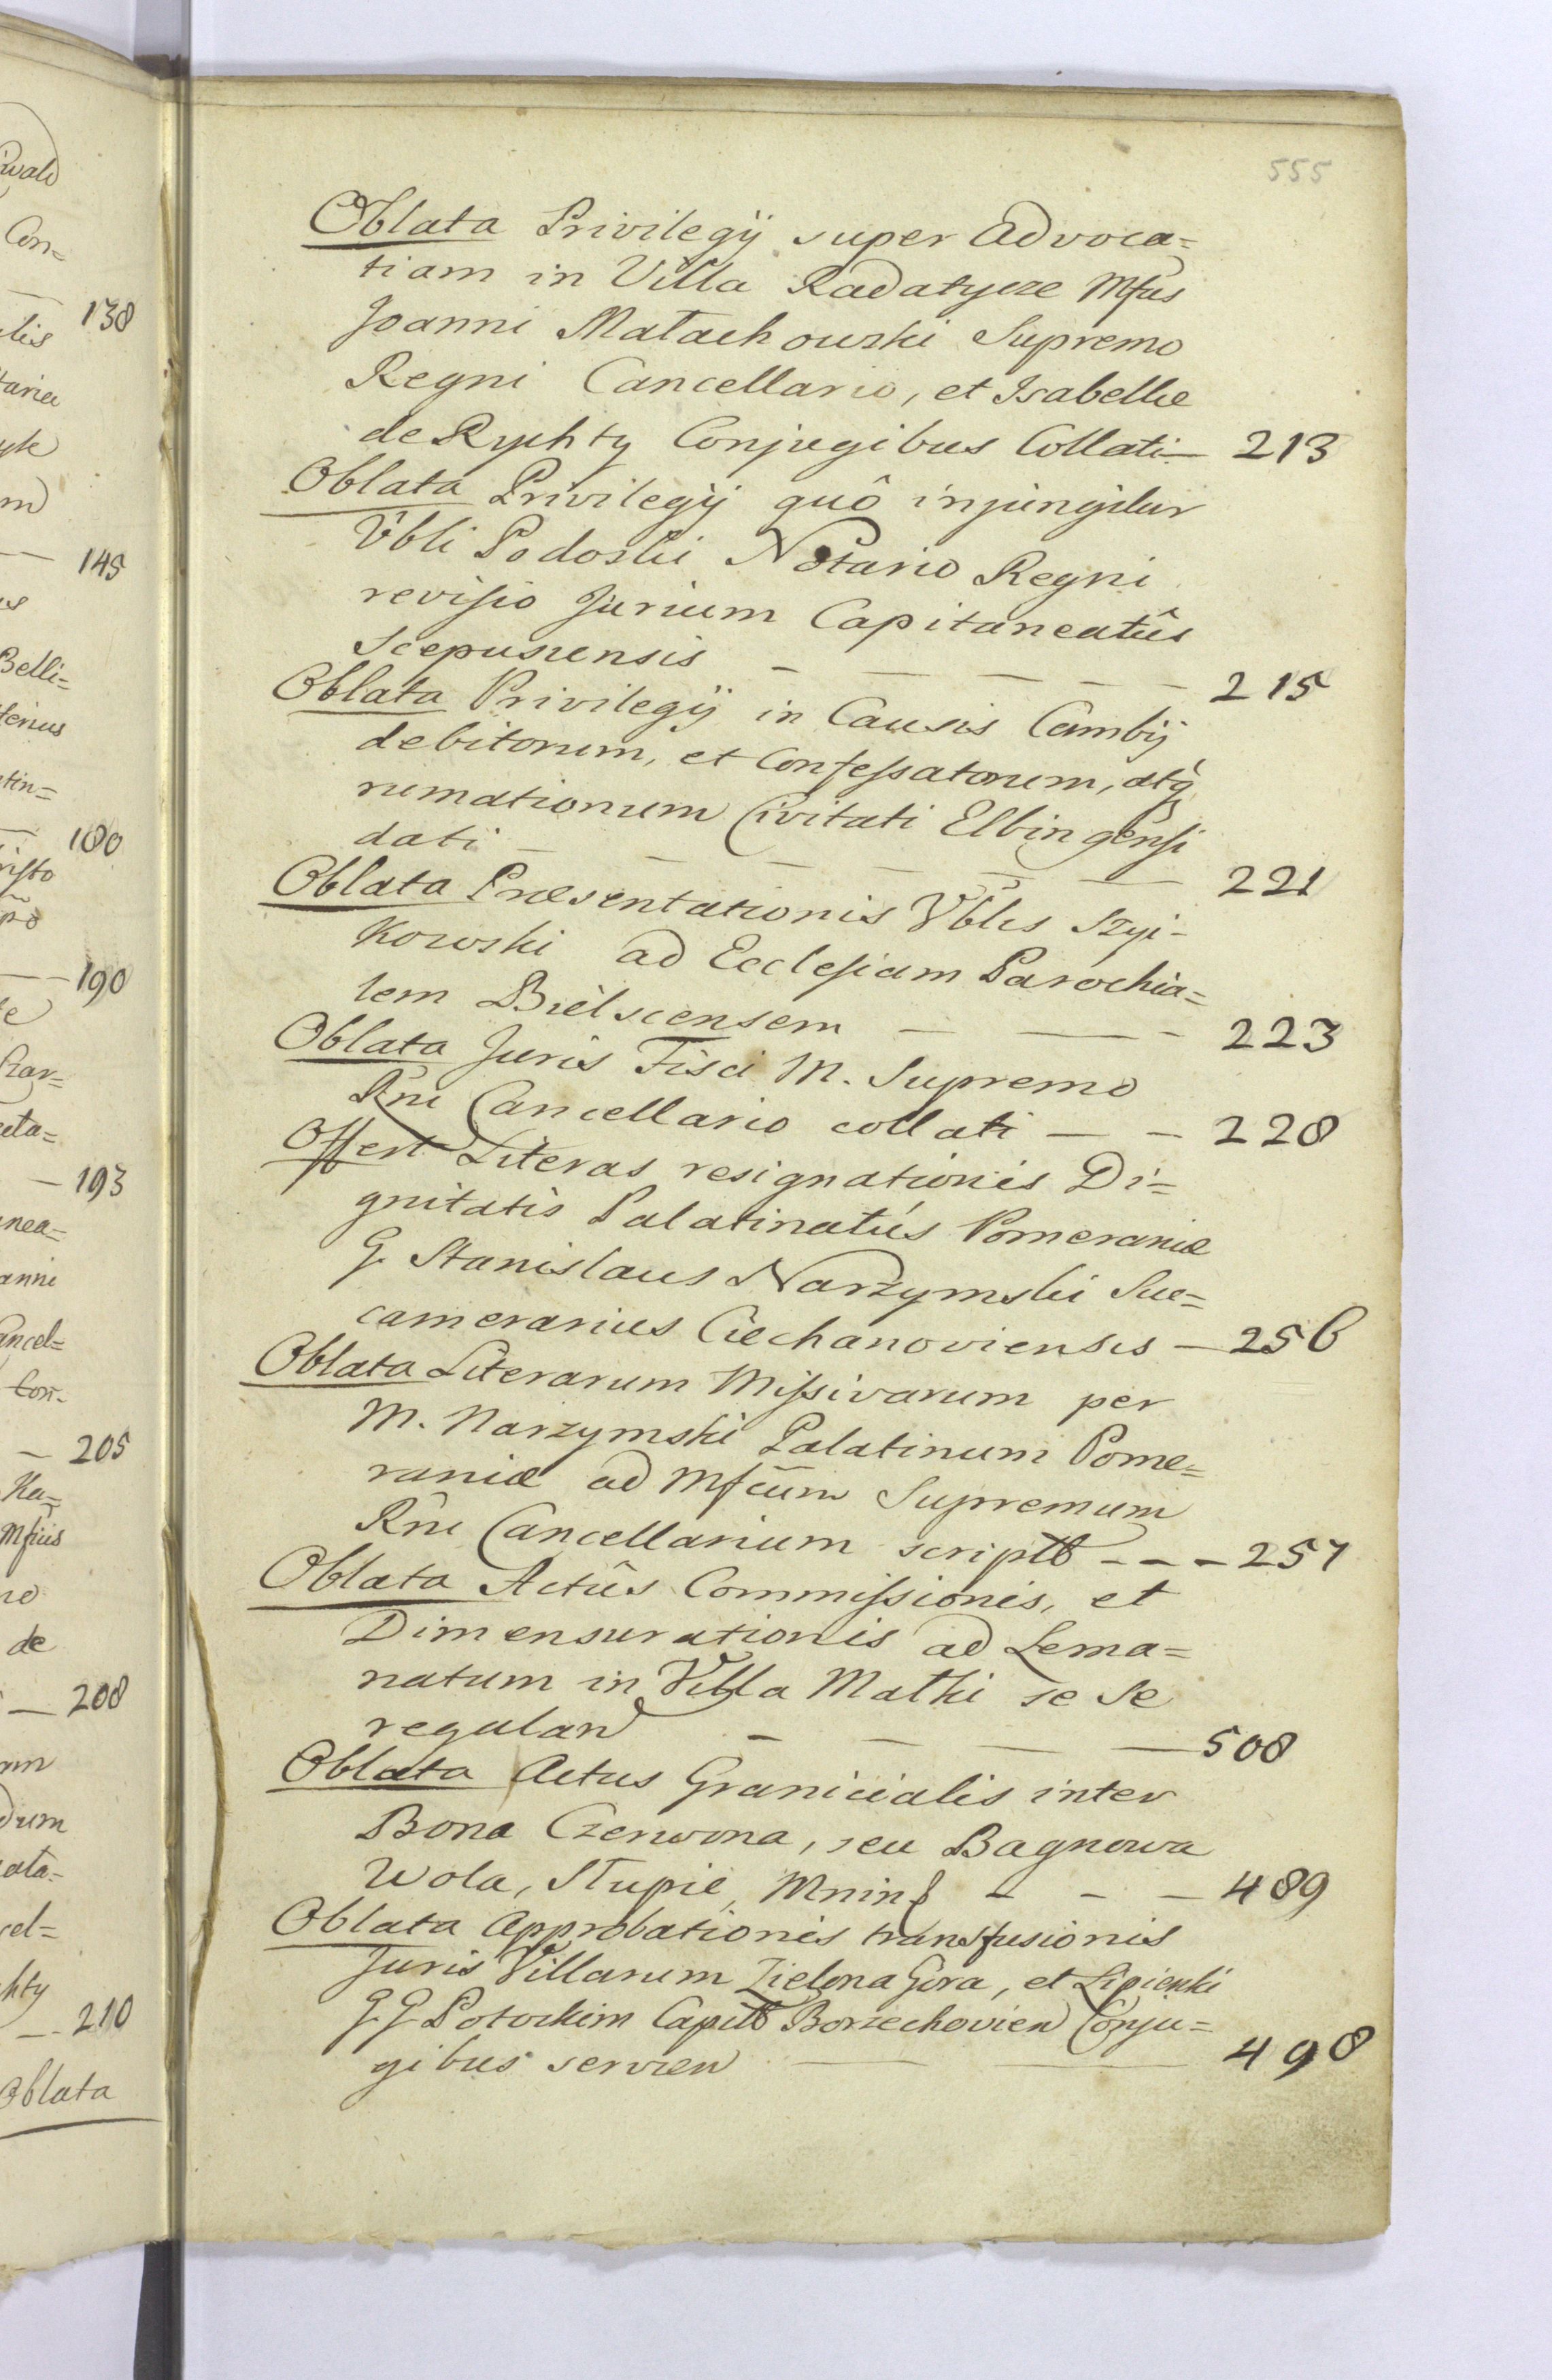 555
Oblata Privilegÿ super Advoca=
tiam in Villa Radatycze Mfus
Joanni Małachowski Supremo
Regni Cancellario, et Isabellæ
de Rychty Conjugibus Collati — 213
Oblata Privilegÿ quô injungitur
Vbli Podoski Notario Regni
revisio Jurium Capitaneatûs
Scepusiensis — — — — — 215
Oblata Privilegÿ in Causis Cambÿ
debitorum, et Confessatorum, atq
rumationum Civitati Elbingensi
dati — — — — — — 221
Oblata Præsentationis Vblis Szyi-
kowski ad Ecclesiam Parochia=
lem Bielscensem — — — 223
Oblata Juris Fisci M. Supremo
Rni Cancellario collati — — 228
Offert Literas resignationis Di=
gnitatis Palatinatûs Pomeraniæ
G. Stanislaus Narzymski Suc=
camerarius Ciechanoviensis — 256
Oblata Literarum Missivarum per
M. Narzymski Palatinum Pome=
raniæ ad Mfcum Supremum
Rni Cancellarium script - - - 257
Oblata Actûs Commissionis, et
Dimensurationis ad Lema=
natum in Villa Mathi se se
regulan — — — — 508
Oblata Actus Granicialis inter
Bona Czerwona, seu Bagnowa
Wola, Słupie, Mnin — — — 489
Oblata Approbationis transfusionis
Juris Villarum Zielona Góra, et Lipienki
G G Potockim Capit Borzechovien Conju=
gibus servien — — 498
138
145
180
190
193
205
208
210
Oblata